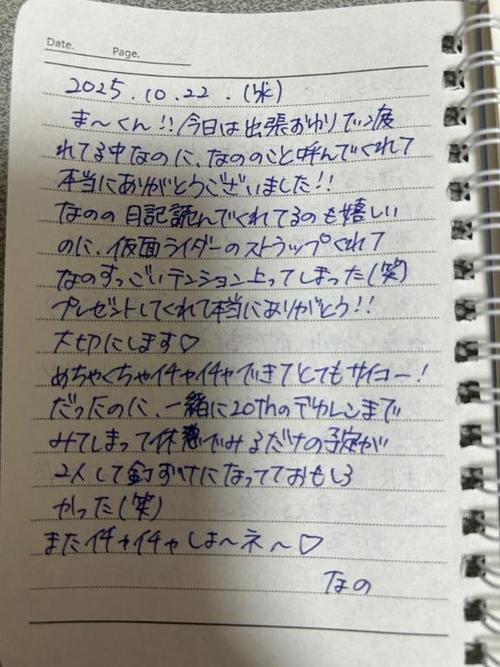 Date.
Page.
2025.10.22.(水)
ま〜くん!!今日は出張おわりで疲
れてる中なのに、なののこと呼んでくれて
本当にありがとうございました!!
なのの日記読んでくれてるのも嬉しい
のに、仮面ライダーのストラップくれて
なのすっごいテンション上ってしまった(笑)
プレゼントしてくれて本当にありがとう!!
大切にします♡
めちゃくちゃイチャイチャできてとてもサイコー!
だったのに、一緒に20thのデカレンまで
みてしまって休憩でみるだけの予定が
2人して釘ずけになってておもしろ
かった(笑)
またイチャイチャしま〜ネ〜♡
なの